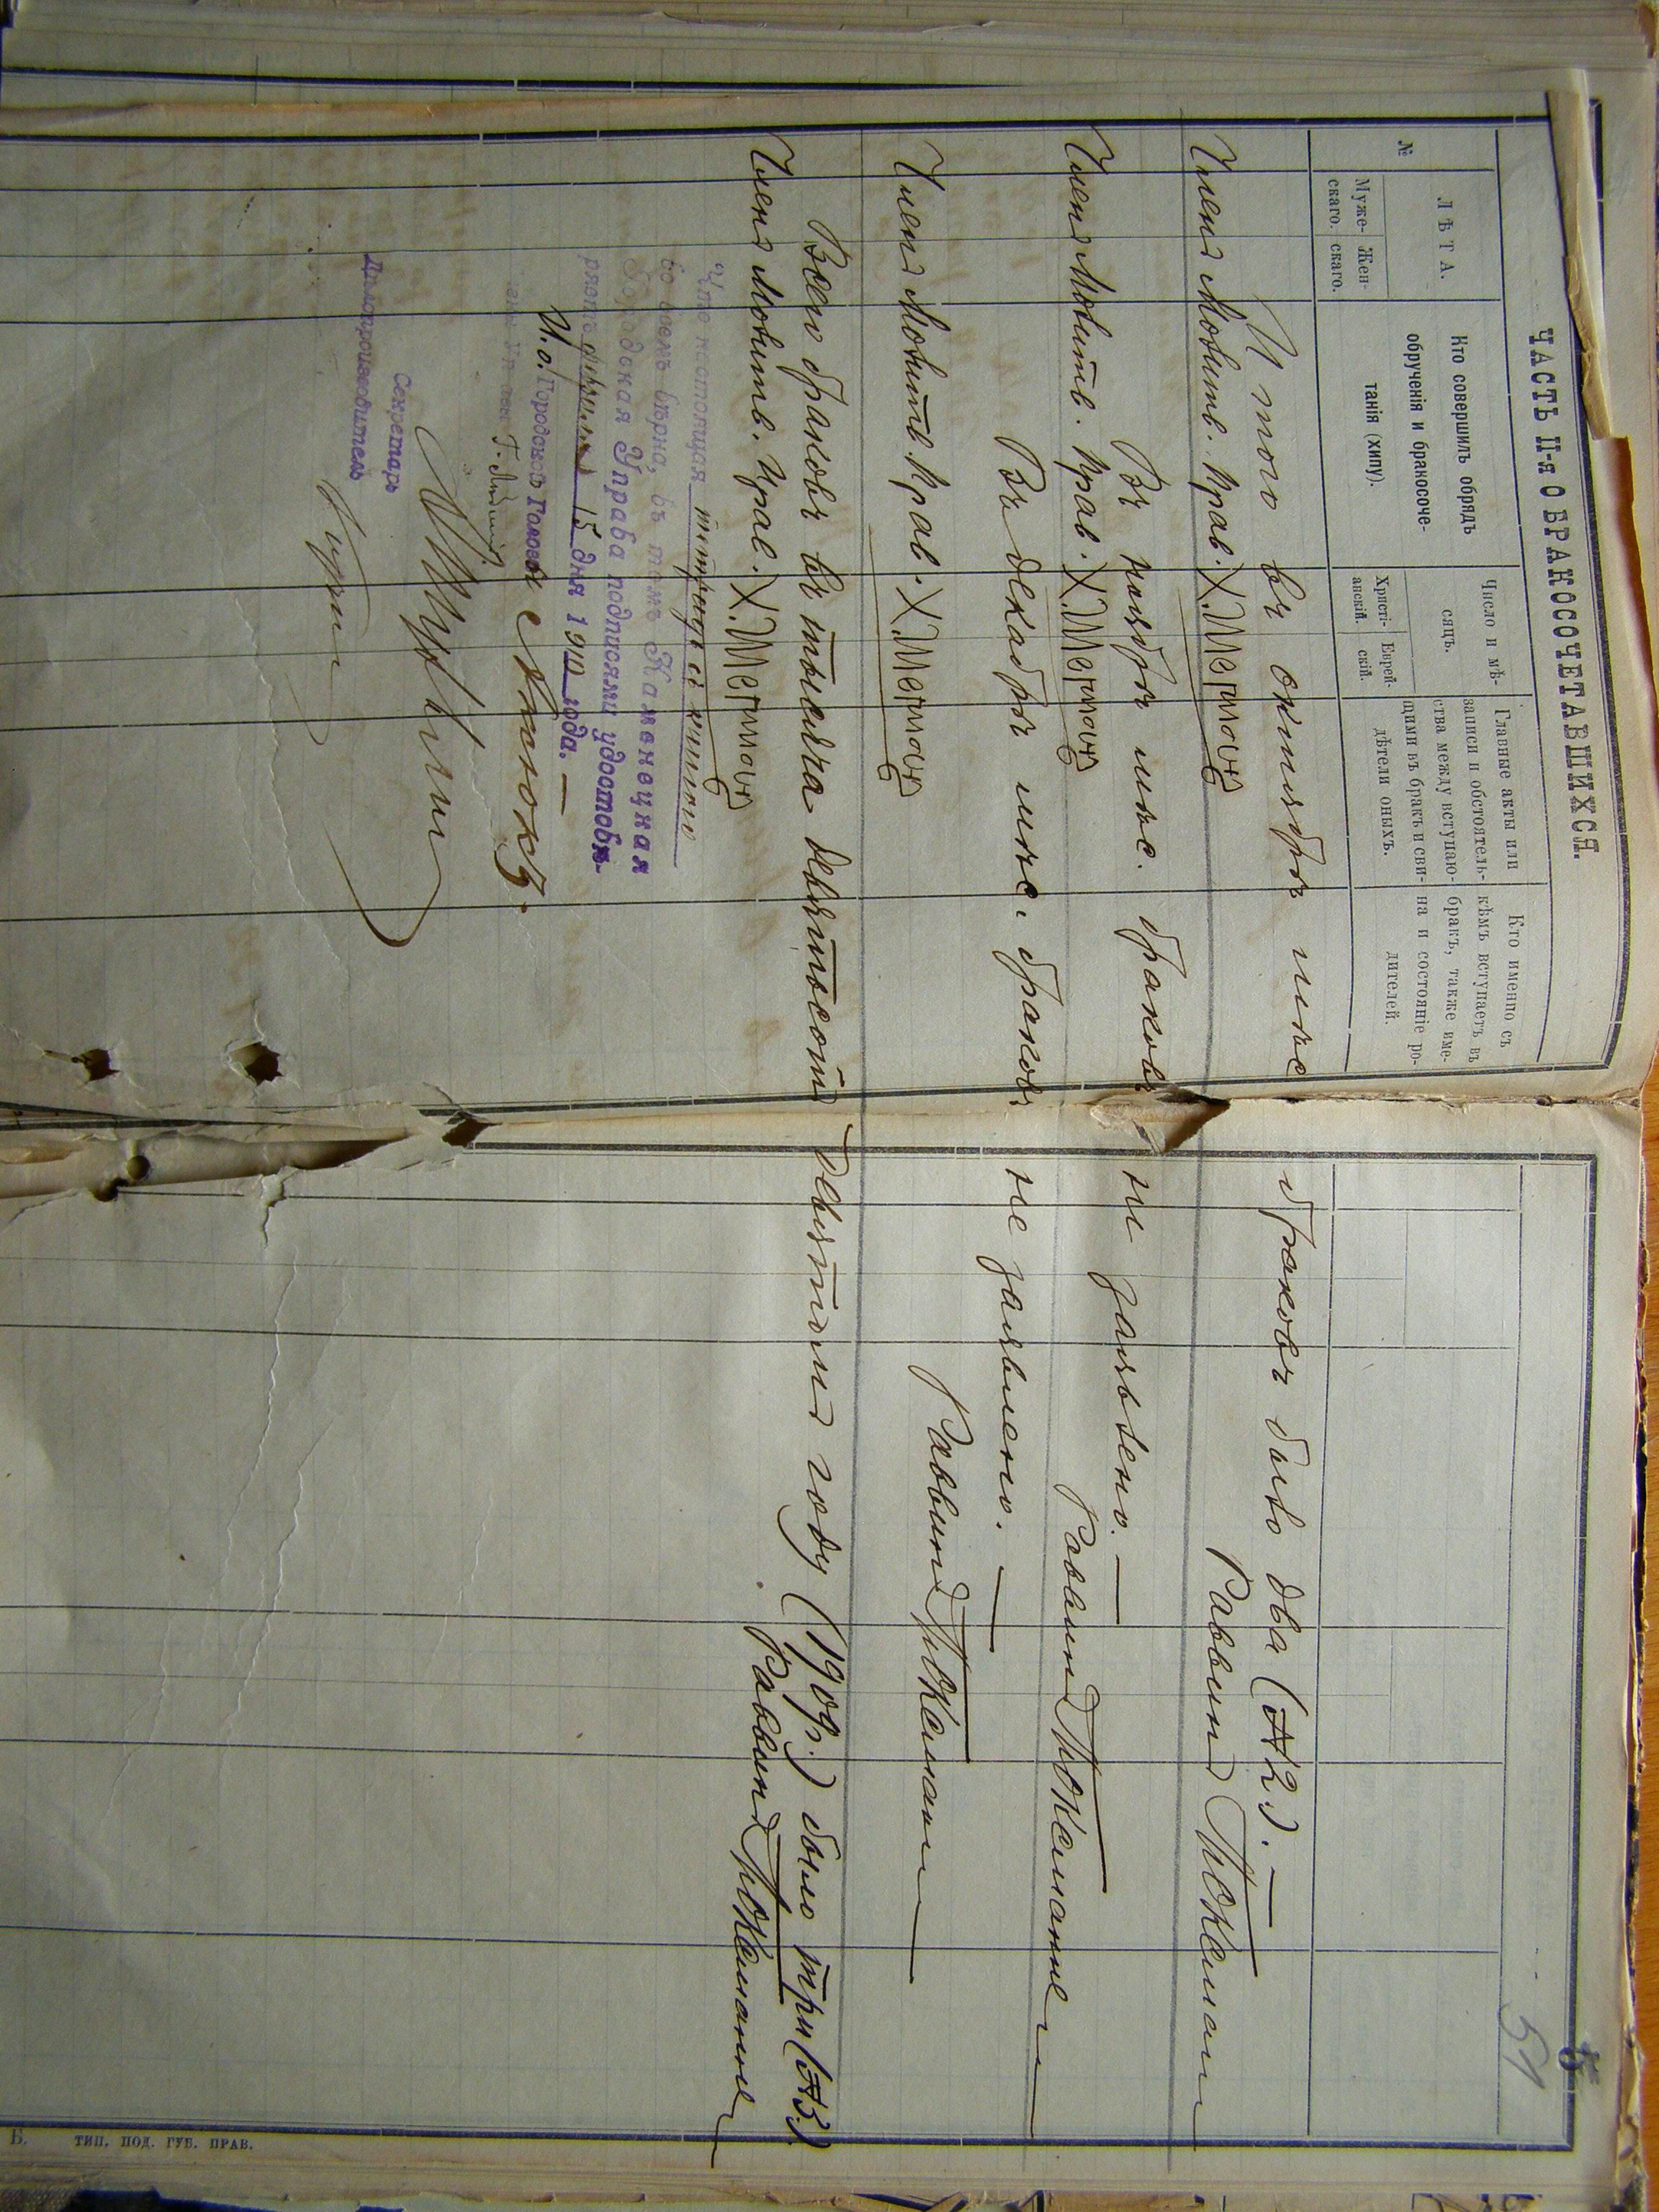 ЧАСТЬ II-я О БРАКОСОЧЕТАВШИХСЯ.
№
ЛѢТА.
Муже-
скаго.
Жен-
скаго.
Кто совершилъ обрядъ
обрученія и бракосоче-
танія (хипу).
Число и мѣ-
сяцъ.
Христі-
анскій.
Еврей-
скій.
Главные акты или
записи и обстоятель-
ства между вступаю-
щими въ бракъ и сви-
дѣтели оныхъ.
Кто именно съ
кѣмъ вступаетъ въ
бракъ, также име-
на и состояніе ро-
дителей.
51
Итого въ октябрѣ мѣс браковъ было два (№2). —
Членъ Молитв. Прав. Раввинъ
Въ ноябрѣ мѣс. браковъ не заявлено. —
Членъ Молитв. Прав. Раввинъ
Въ декабрѣ мѣс. браковъ не заявлено. —
Членъ Молитв. Прав. Раввинъ
Всего браковъ въ тысяча девятьсотъ девятомъ году (1909г.) было три (№3).
Членъ Молитв. Прав. Раввинъ
Что настоящая тетрадь съ
во всемъ вѣрна, въ томъ Каменецкая
Городская Управа подписями удостовѣ-
ряетъ 15 дня 1910 года. —
И. о. Городской Голова
Секретарь
Дѣлопроизводитель
Б. ТИП. ПОД. ГУБ. ПРАВ.